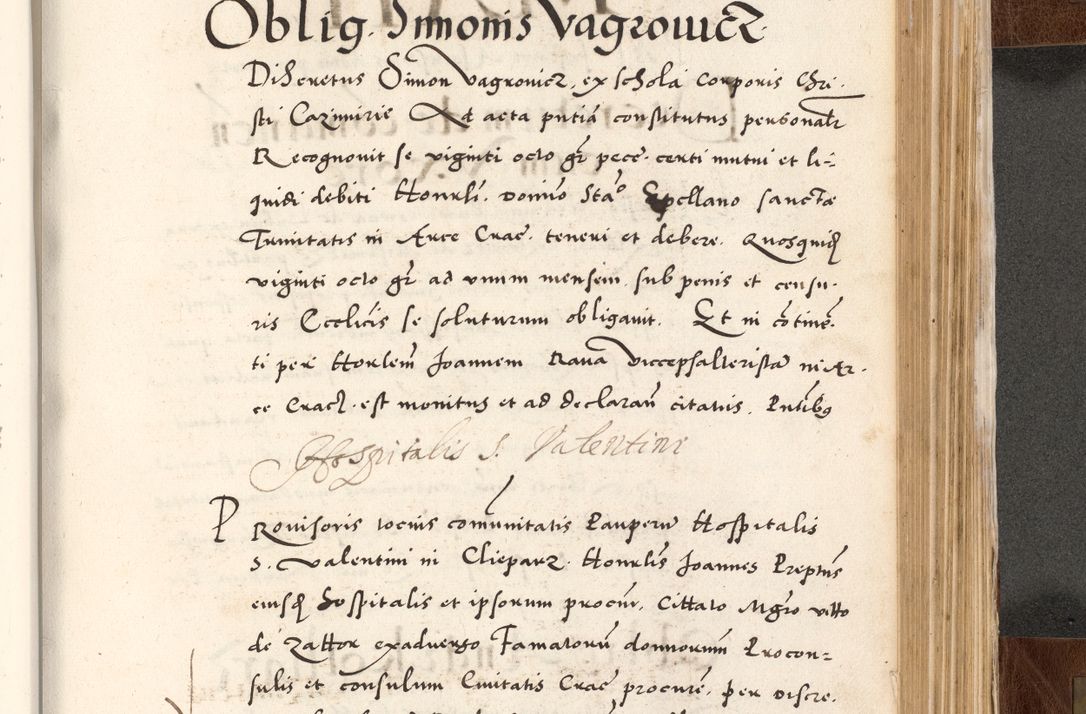 Oblig. Simonis Vagrowicz
Discretus Simon Vagrowicz, ex schola Corporis Chri-
sti Cazimirie Ad acta pntia constitutus personalr
Recognouit se viginti octo gr pecc. certi mutui et li-
quidi debiti Honrli. Domino Sta° Capellano sanctæ
Trinitatis in Arce Crac. teneri et debere. Quosquid
viginti octo gr ad vnum mensem sub penis et censu-
ris Ecclicis se soluturum obligauit. Et in contine.
ti per Horlem Joannem Raua Viccepsalteristæ in Ar-
ce Crac. est monitus et ad declaran citatus. Pntibus
Hospitalis S. Valentini
PRouisoris tocius comunitatis Pauperu Hospitalis
S. Valentini in Clieparz. Honrlis Joannes Preptus
eiusd Hospitalis et ipsorum procur. Cittato Mgro vitto
de Zattor exaduerso Famatoru dominorum Procon-
sulis et consulum Ciuitatis Crac procure. per discre.